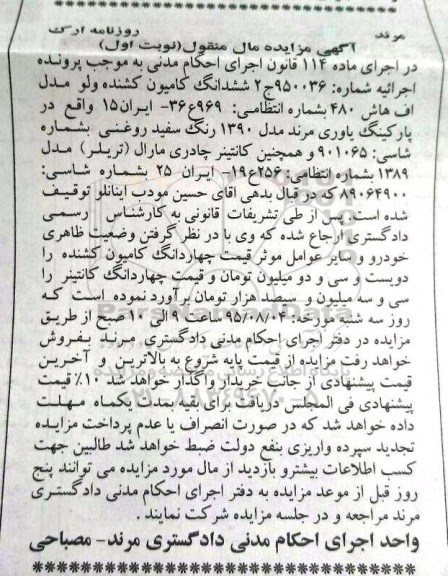 مرند روزنامه ارک
آگهی مزایده مال منقول(نوبت اول)
در اجرای ماده ۱۱۴ قانون اجرای احکام مدنی به موجب پرونده
اجرائیه شماره: ۹۵۰۰۳۶ج۲ ششدانگ کامیون کشنده ولو مدل
اف هاش ۴۸۰ بشماره انتظامی: ۹۶۹ع۳۶- ایران۱۵ واقع در
پارکینگ یاوری مرند مدل ۱۳۹۰ رنگ سفید روغنی بشماره
شاسی: ۹۰۱۰۶۵ و همچنین کانتینر چادری مارال (تریلر) مدل
۱۳۸۹ بشماره انتظامی: ۲۵۶ع۱۹- ایران ۲۵ بشماره شاسی:
۸۹۰۶۴۹۰۰ که در قبال بدهی آقای حسین مودب اینانلو توقیف
شده است. پس از طی تشریفات قانونی به کارشناس رسمی
دادگستری ارجاع شده که وی با در نظر گرفتن وضعیت ظاهری
خودرو و سایر عوامل موثر قیمت چهاردانگ کامیون کشنده را
دویست و سی و دو میلیون تومان و قیمت چهاردانگ کانتینر را
سی و سه میلیون و سیصد هزار تومان برآورد نموده است که
روز سه شنبه مورخه: ۹۵/۰۸/۰۴ ساعت ۹ الی ۱۰ صبح از طریق
مزایده در دفتر اجرای احکام مدنی دادگستری مرند بفروش
خواهد رفت مزایده از قیمت پایه شروع به بالاترین و آخرین
قیمت پیشنهادی از جانب خریدار واگذار خواهد شد ۱۰٪ قیمت
پیشنهادی فی المجلس دریافت برای بقیه بمدت یکماه مهلت
داده خواهد شد که در صورت انصراف یا عدم پرداخت مزایده
تجدید سپرده واریزی بنفع دولت ضبط خواهد شد طالبین جهت
کسب اطلاعات بیشترو بازدید از مال مورد مزایده می توانند پنج
روز قبل از موعد مزایده به دفتر اجرای احکام مدنی دادگستری
مرند مراجعه و در جلسه مزایده شرکت نمایند.
واحد اجرای احکام مدنی دادگستری مرند- مصباحی